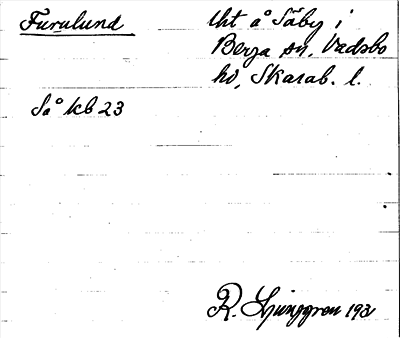 Furulund
tht å Säby i
Berga sn, Vadsbo
hd, Skarab. l.
Så kb 23
R. Ljunggren 193